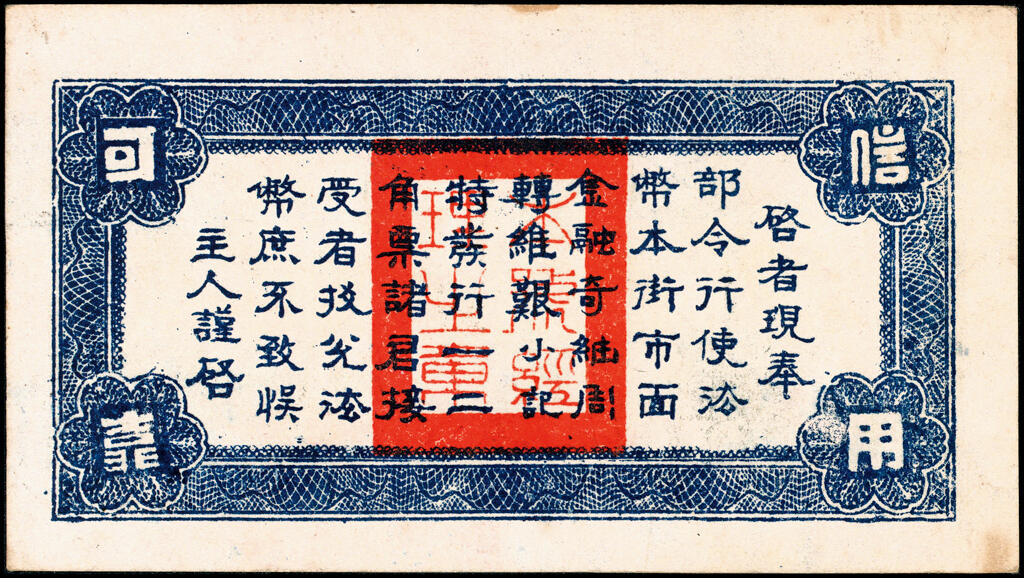 信用可靠
啓者現奉
部令行使法
幣本街市面
金融奇絀周
轉維艱小記
特發行一二
角票諸君接
受者兌法
幣庶不致悞
主人謹啓
本號經
理之章